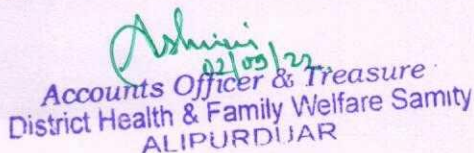 02/09/22
Accounts Officer & Treasure
District Health & Family Welfare Samity
ALIPURDUAR